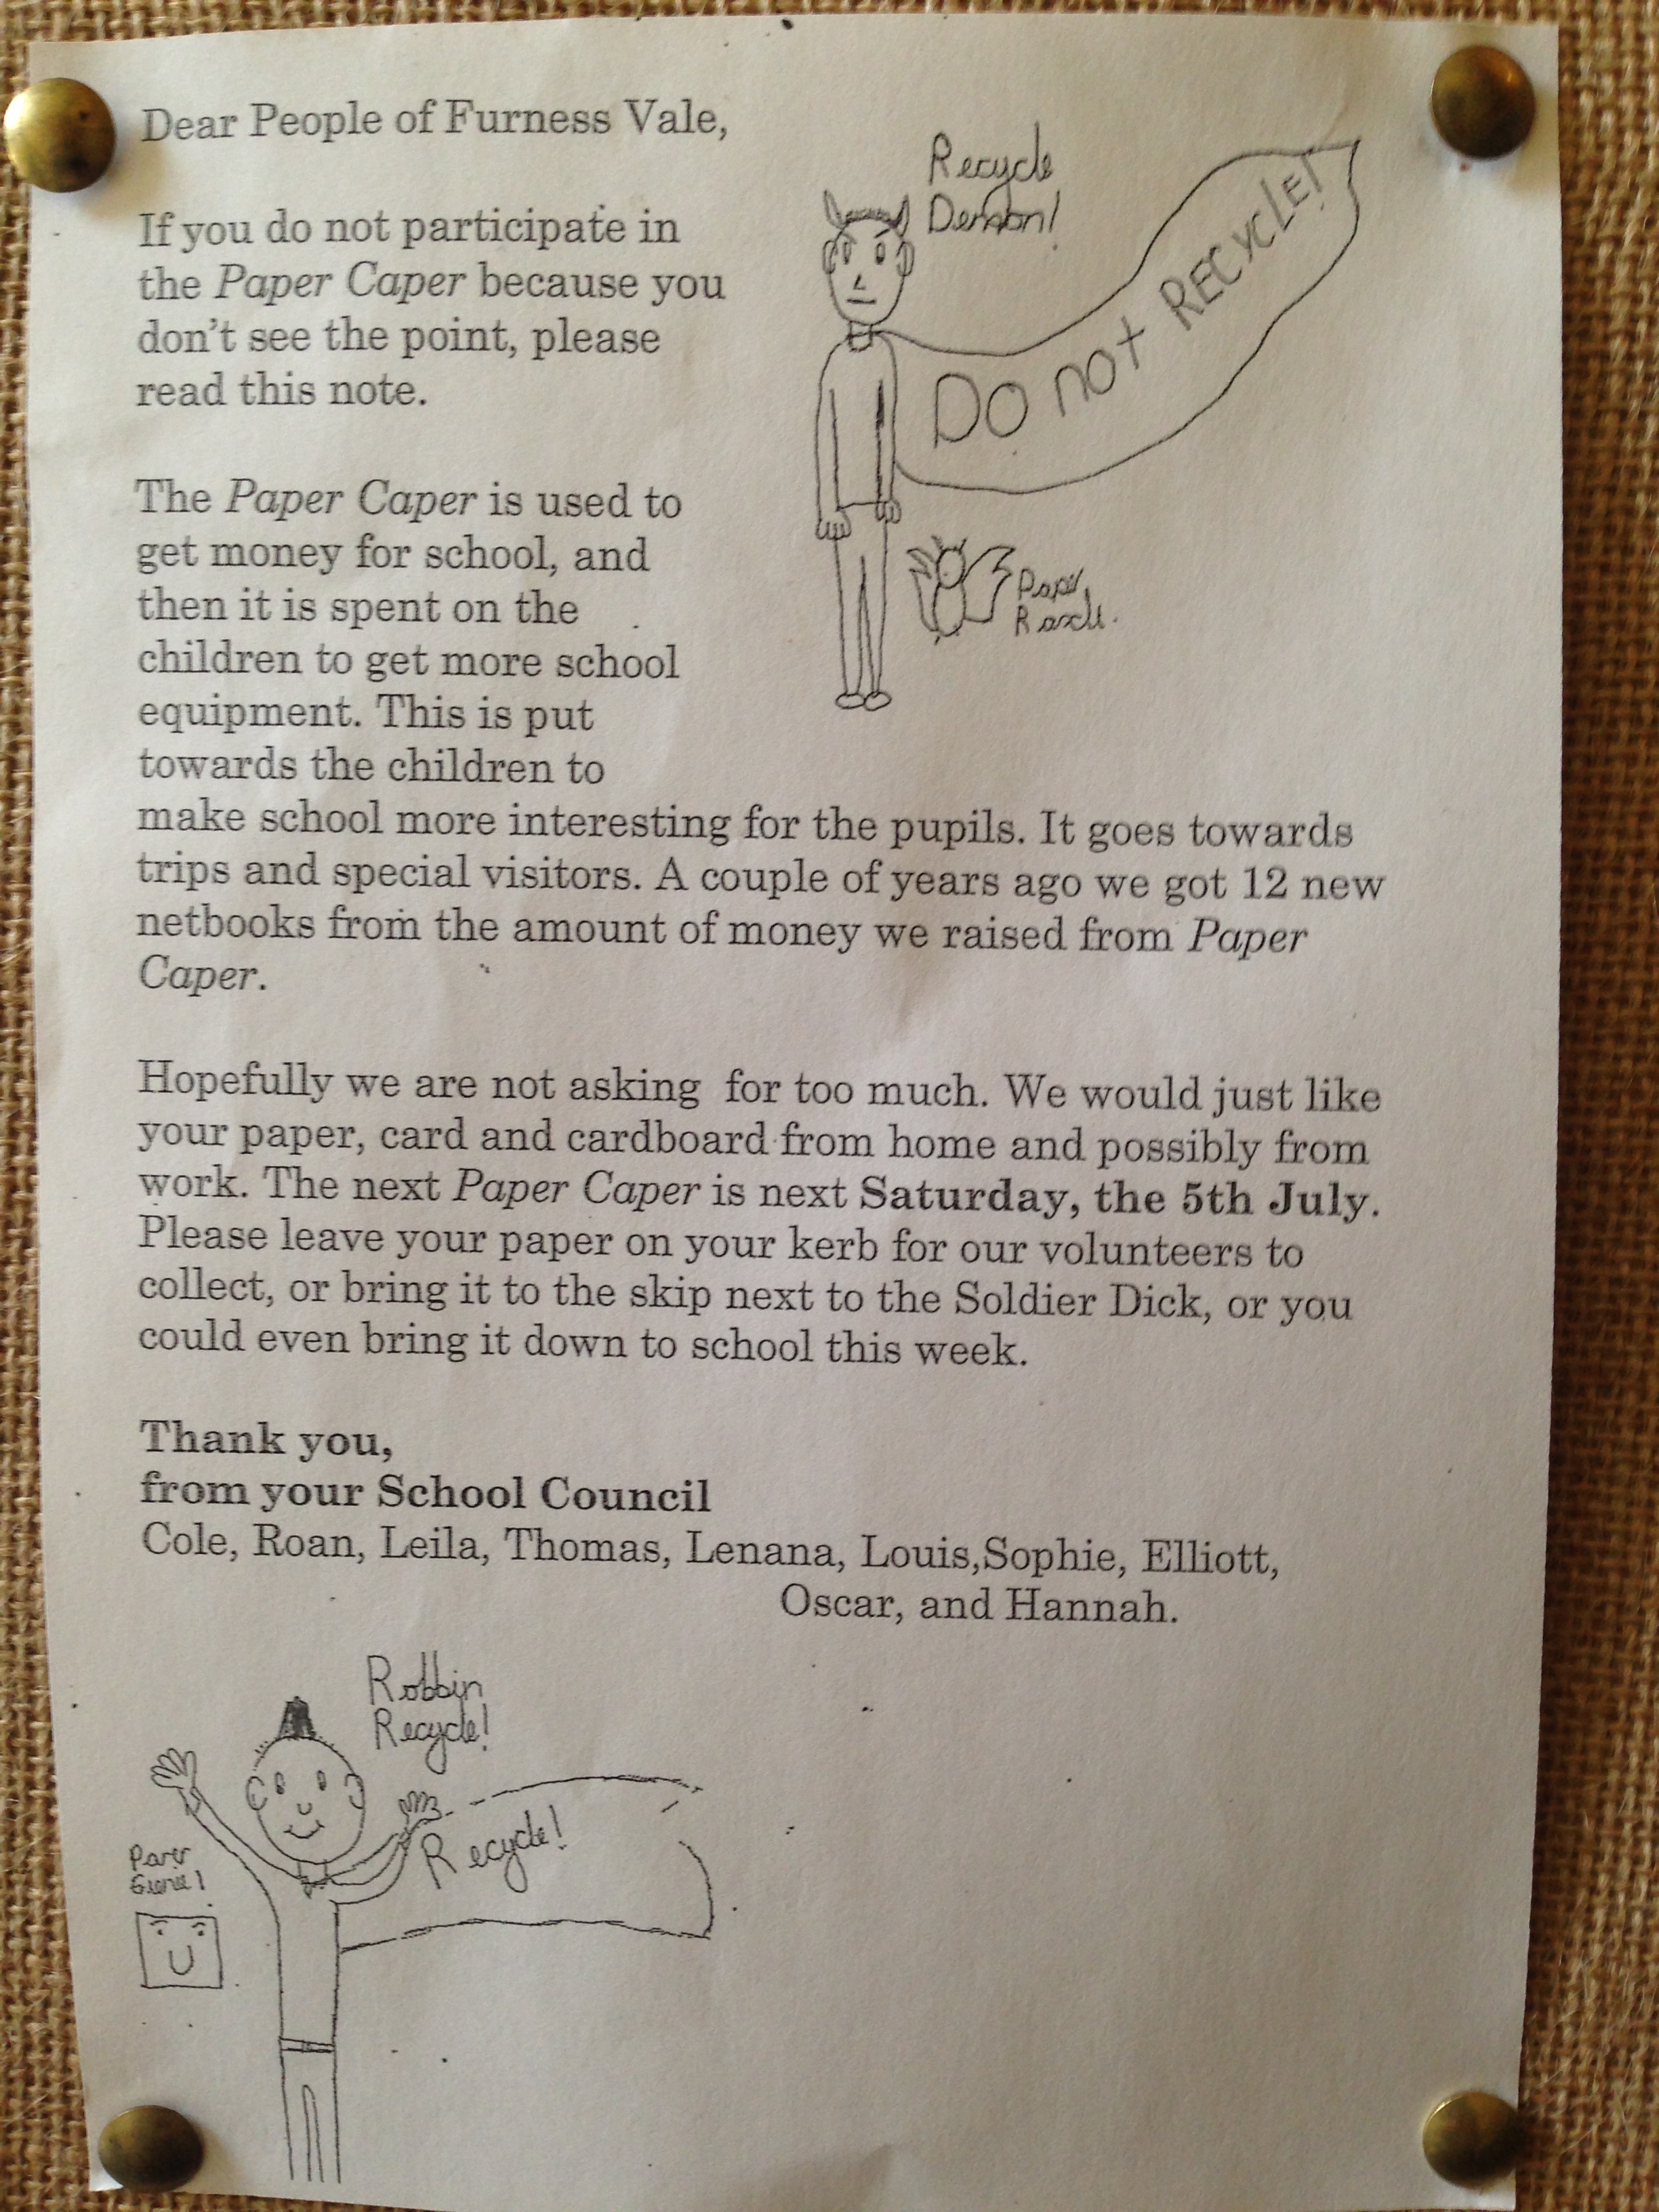 Dear People of Furness Vale,
Recycle
Demon!
DO NOT RECYCLE!
If you do not participate in
the Paper Caper because you
don't see the point, please
read this note.
The Paper Caper is used to
get money for school, and
then it is spent on the
children to get more school
equipment. This is put
towards the children to
make school more interesting for the pupils. It goes towards
trips and special visitors. A couple of years ago we got 12 new
netbooks from the amount of money we raised from Paper
Caper.
Paper
Hopefully we are not asking for too much. We would just like
your paper, card and cardboard from home and possibly from
work. The next Paper Caper is next Saturday, the 5th July.
Please leave your paper on your kerb for our volunteers to
collect, or bring it to the skip next to the Soldier Dick, or you
could even bring it down to school this week.
Thank you,
from your School Council
Cole, Roan, Leila, Thomas, Lenana, Louis,Sophie, Elliott,
Oscar, and Hannah.
Robbin
Recycle!
Recycle!
Paper